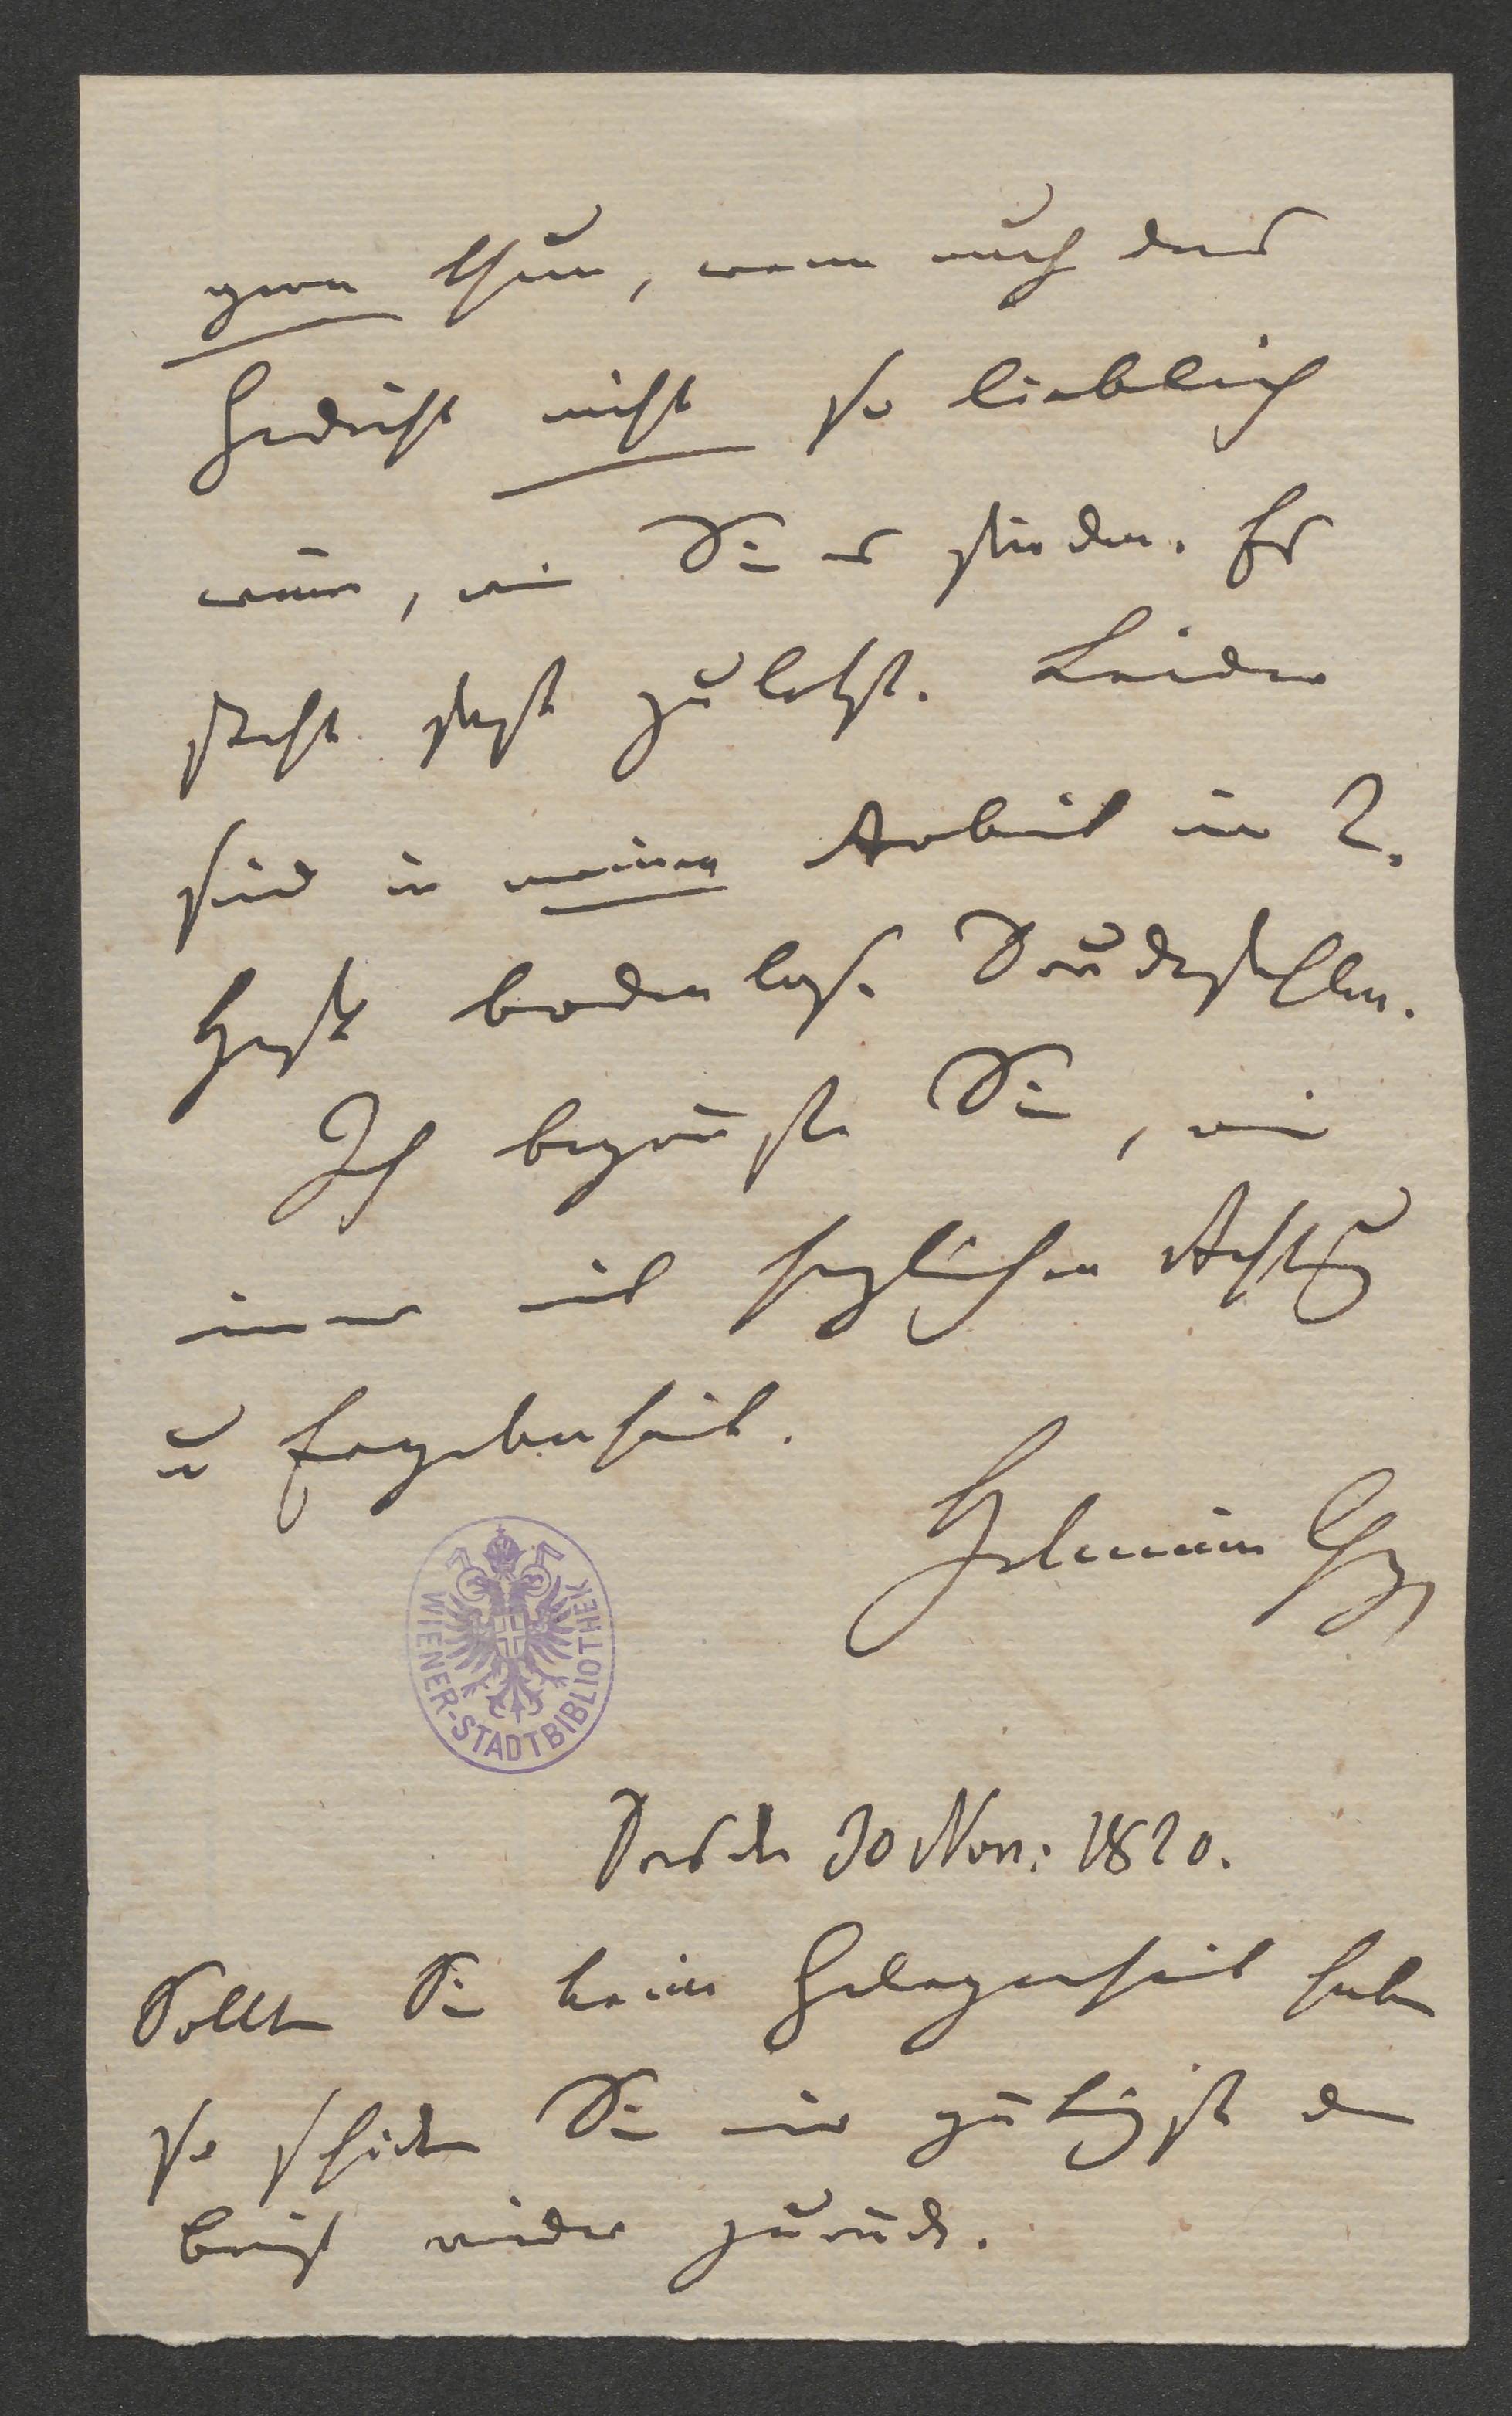 gern thun, wenn auch das
Gedicht nicht so lieblich
wäre, wie Sie es finden. Es
steht fast zuletzt. Leider
sind in meiner Arbeit im 2.
Heft bodenlose Druckfehler.
Ich begrüße Sie, wie
immer mit herzlicher Achtung
u Ergebenheit.
Helmina Chy
WIENER-STADTBIBLIOTHEK
Dresden 30 Nov: 1820.
Sollten Sie keine Gelegenheit haben
so schicken Sie mir gütigst den
Brief wieder zurück.